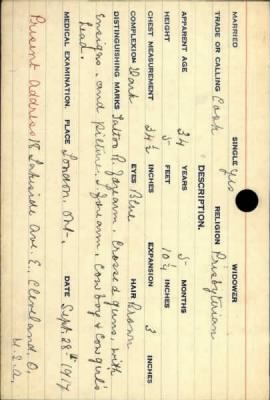 MARRIED SINGLE Yes WIDOWER
TRADE OR CALLING Cook RELIGION Presbyterian
DESCRIPTION.
APPARENT AGE 34 YEARS 5 MONTHS
HEIGHT 5 FEET 10¼ INCHES
CHEST MEASUREMENT 34½ INCHES EXPANSION 3 INCHES
COMPLEXION Dark EYES Blue HAIR Brown
DISTINGUISHING MARKS Tattoo R. forearm, crossed guns, with
Ensigns, and picture. L forearm, Cowboy & Cowgirl's
head.
MEDICAL EXAMINATION. PLACE London, Ont. DATE Sept. 28th 1917
Present Address 18 Lakeside Ave. E., Cleveland, O.
U.S.A.